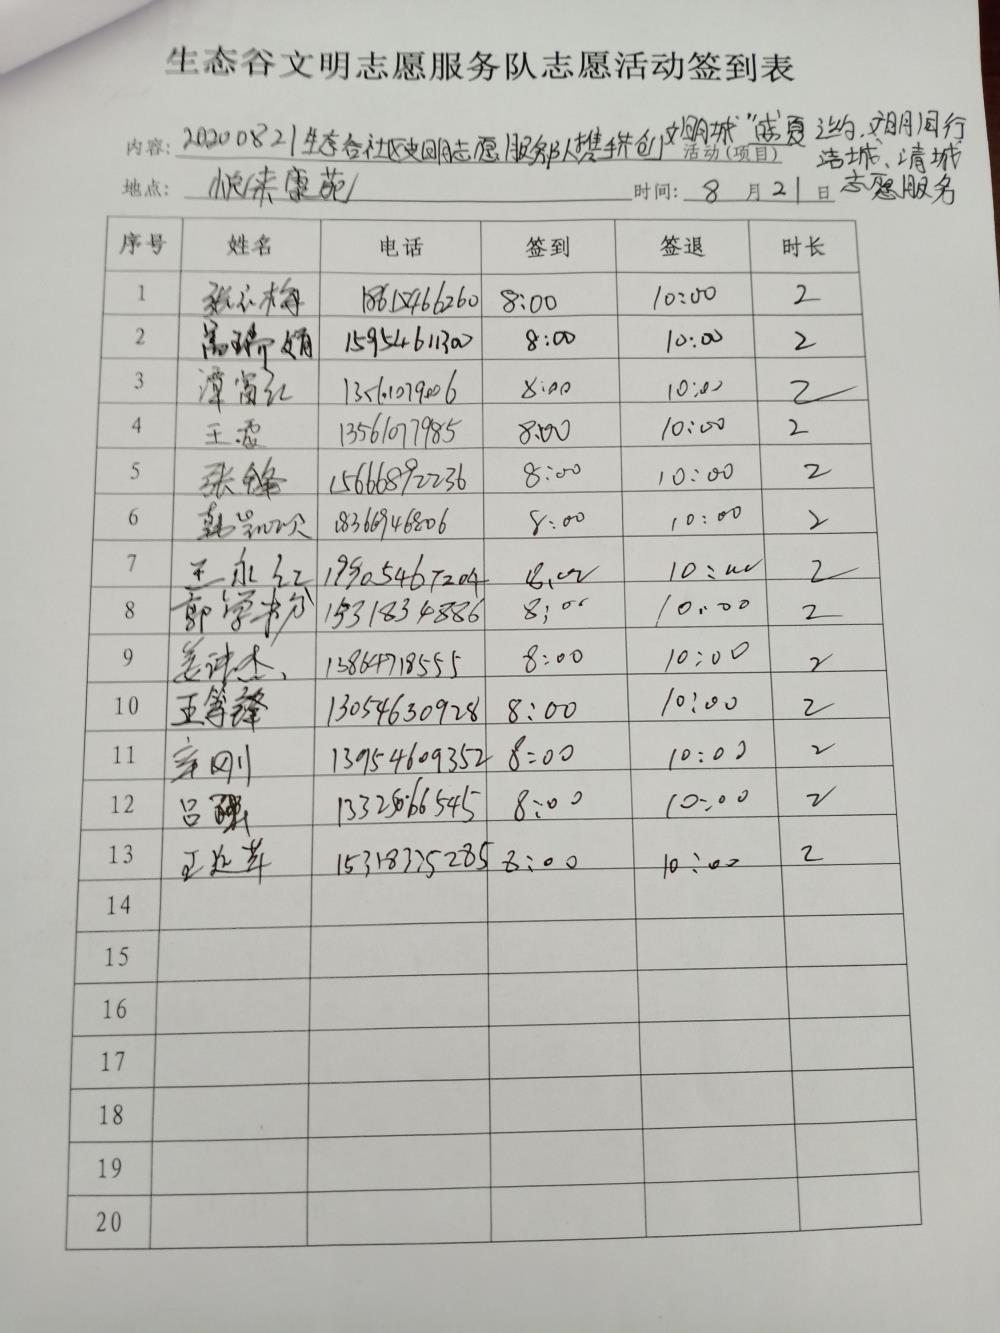 生态谷文明志愿服务队志愿活动签到表
内容: 20200821生态谷社区文明志愿服务队携手共创文明城"盛夏之约,文明同行 活动(项目)
洁城、清城
地点: 悦来康苑 时间: 8月21日 志愿服务
序号 姓名 电话 签到 签退 时长
1 梅 18615466260 8:00 10:00 2
2 高瑞娟 15954611300 8:00 10:00 2
3 谭富红 13561079006 8:00 10:00 2
4 王霞 13561077985 8:00 10:00 2
5 张锋 15666892236 8:00 10:00 2
6 韩 18366946806 8:00 10:00 2
7 王永红 19905467204 8:00 10:00 2
8 郭学 15318834886 8:00 10:00 2
9 姜 杰 13864718555 8:00 10:00 2
10 王 锋 13054630928 8:00 10:00 2
11 辛刚 13954609352 8:00 10:00 2
12 吕 8:00 10:00 2
13 王 15318375285 8:00 10:00 2
14
15
16
17
18
19
20